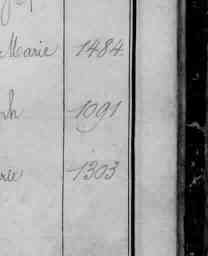 Marie 1484
ph 1091
rie 1303